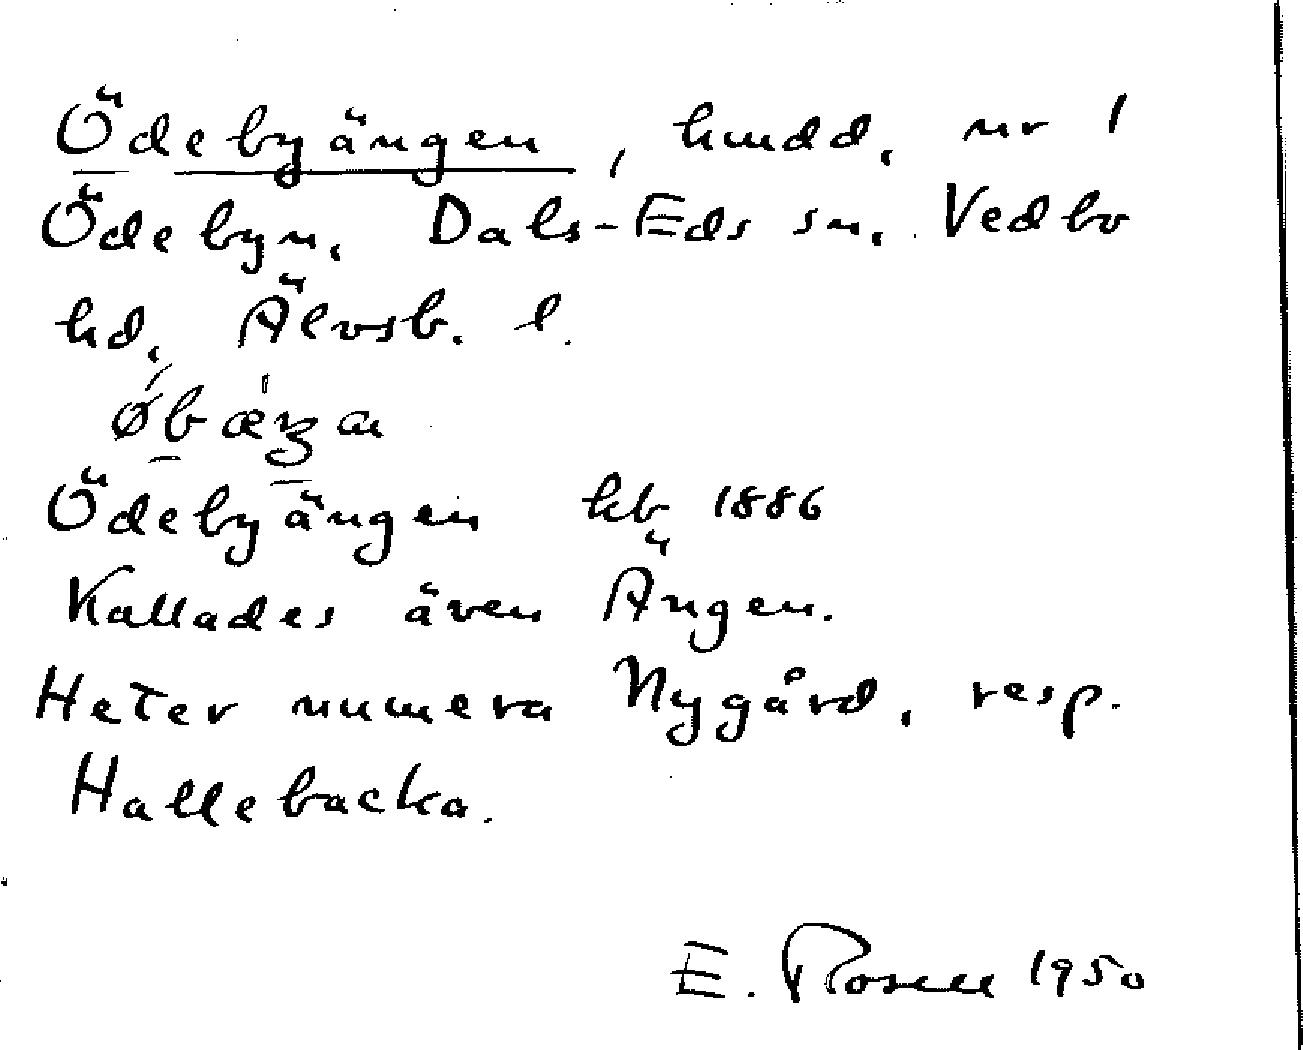 Ödebyängen, hmdd, nr 1
Ödebyn, Dals-Eds sn, Vedbo
hd, Älvsb. l.
Ödebyängen kb 1886
Kallades även Ängen.
Heter numera Nygård, resp.
Hallebacka.
E. Rosell 1950